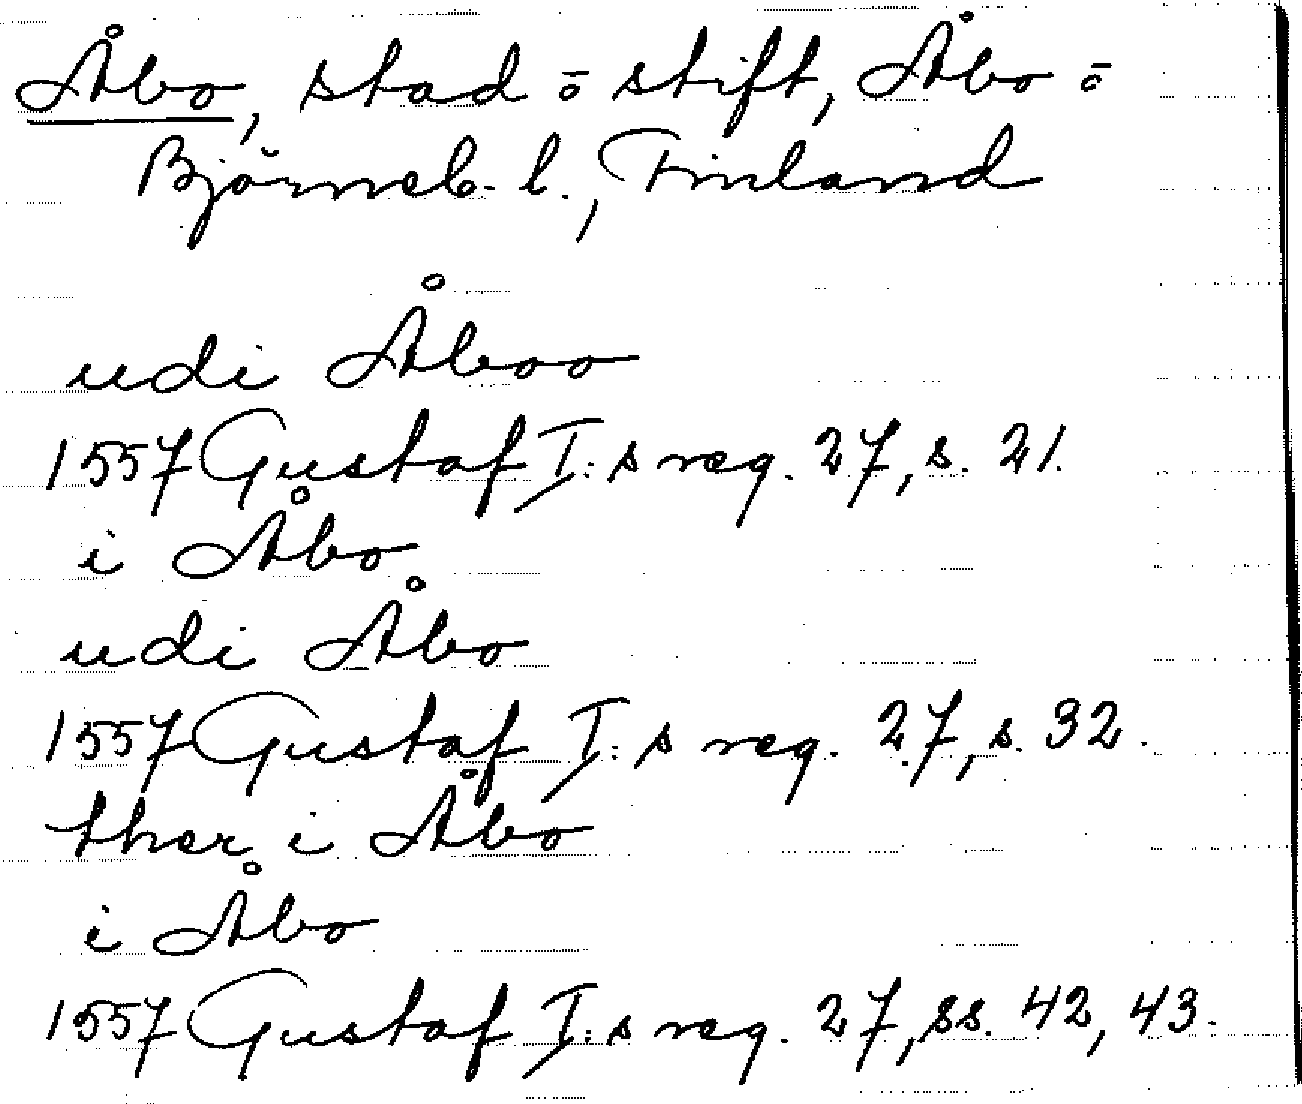 Åbo, stad ō stift, Åbo ō
Björneb. l., Finland
udi Åboo
1557 Gustaf I:s reg. 27, s. 21.
i Åbo
udi Åbo
1557 Gustaf I:s reg. 27, s. 32.
ther i Åbo
i Åbo
1557 Gustaf I:s reg. 27, ss. 42, 43.